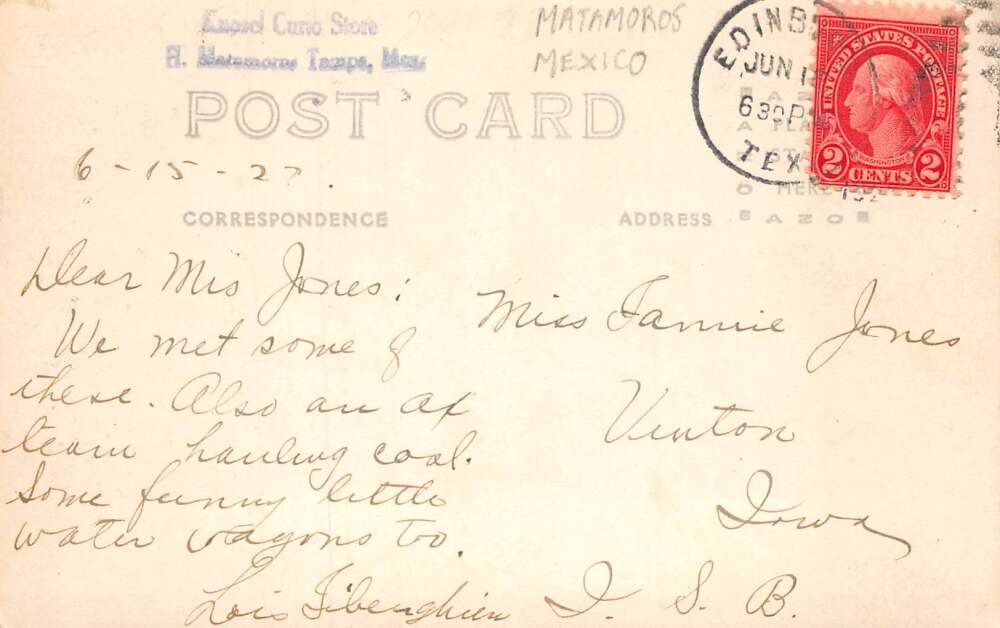 Curio Store
H. Matamoros Tamps, Mex
MATAMOROS
MEXICO
EDINB
JUN 1
630 PM
TEX
192
UNITED STATES POSTAGE
WASHINGTON
2 CENTS 2
POST CARD
PLA
ST
HERE
AZO
6-15-27.
CORRESPONDENCE
ADDRESS
Dear Mis Jones:
We met some of
these. Also an ox
team hauling coal.
Some funny little
water wagons too.
Lois
Miss Fannie Jones
Vinton
Iowa
I. S. B.